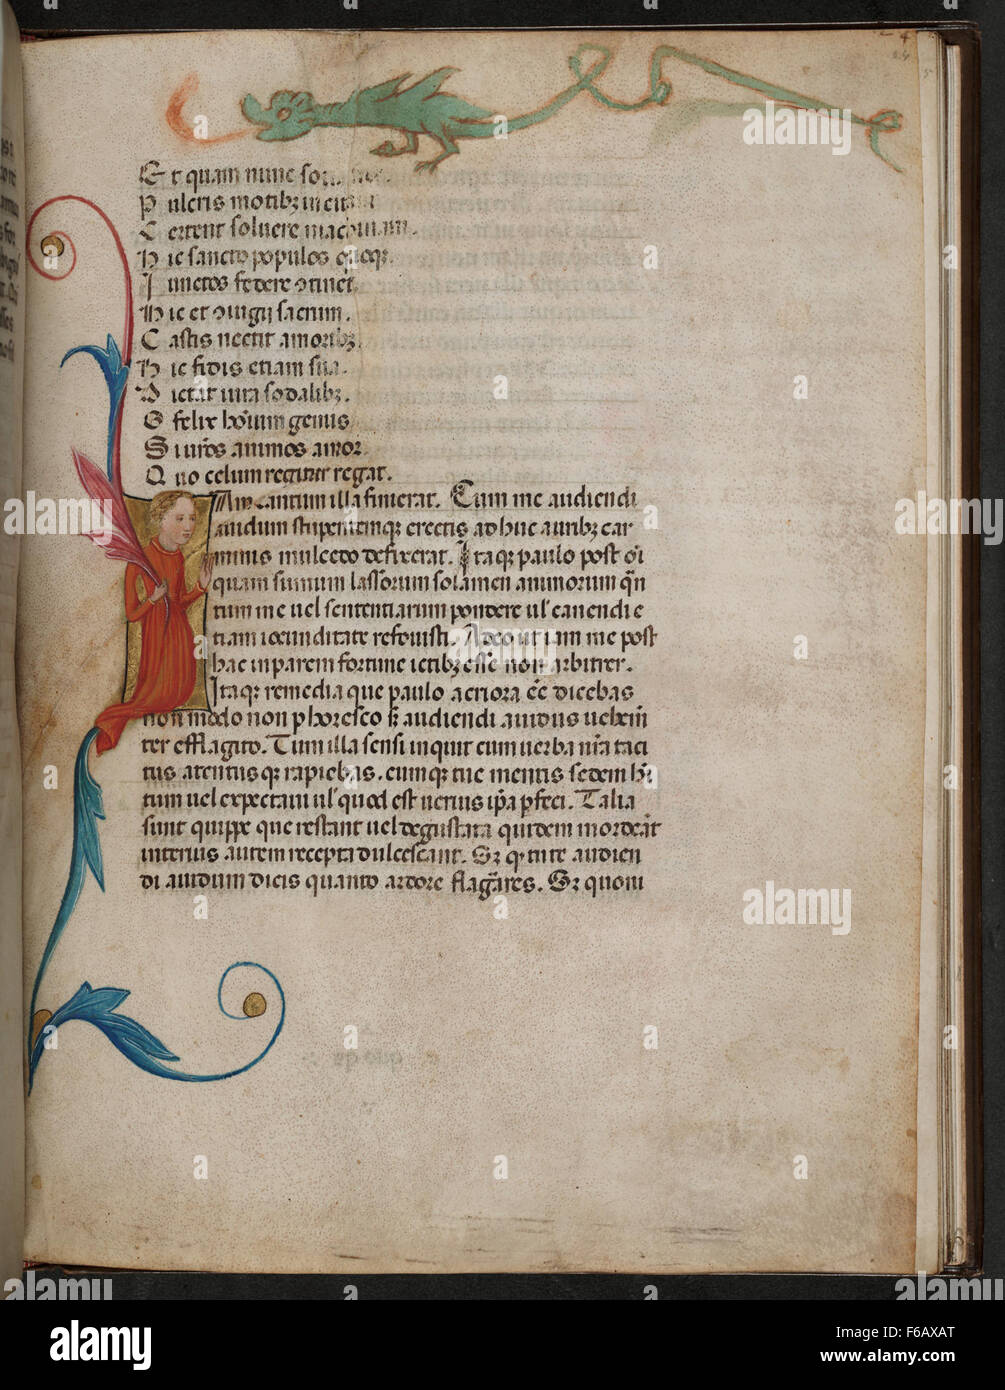 Et quam nunc
Pulcris motibꝫ incitant
Certent soluere machinam.
Hic sancto populos quoqꝫ.
Iunctos federe ꝯtinet.
Hic et ꝯiugij sacrum.
Castis nectit amoribꝫ.
Hic fidis etiam sua.
Dictat iura sodalibꝫ.
O felix hoīum genus
Si uīros animos amor.
Quo celum regitur regat.
Iam cantum illa finierat. Cum me audiendi
auidum stupentemqꝫ erectis adhuc auribꝫ car
minis mulcedo defixerat. Itaqꝫ paulo post
quam sum̄um lassorum solamen animorum
tum me uel sententiarum pondere ul' canendi e
tiam iocunditate refouisti. Adeo ut iam me post
hac inparem fortune ictibꝫ esse non arbitrer.
Itaqꝫ remedia que paulo acriora eē dicebas
non modo non phoresco sꝫ audiendi auidus uehem̄
ter efflagito. Tum illa sensi inquit cum uerba nr̄a taci
tus atentusqꝫ rapiebas. eumqꝫ tue mentis
tum uel expectaui ul' quod est uerius ip̄a pfeci. Talia
sunt quippe que restant uel degustata quidem mordeāt
interius autem recepta dulcescant. Sꝫ qꝫ tu te audien
di auidum dicis quanto ardore flagr̄ares. Sꝫ quoni
24
alamy
alamy
alamy
alamy
alamy
alamy
alamy
Image ID: F6AXAT
www.alamy.com